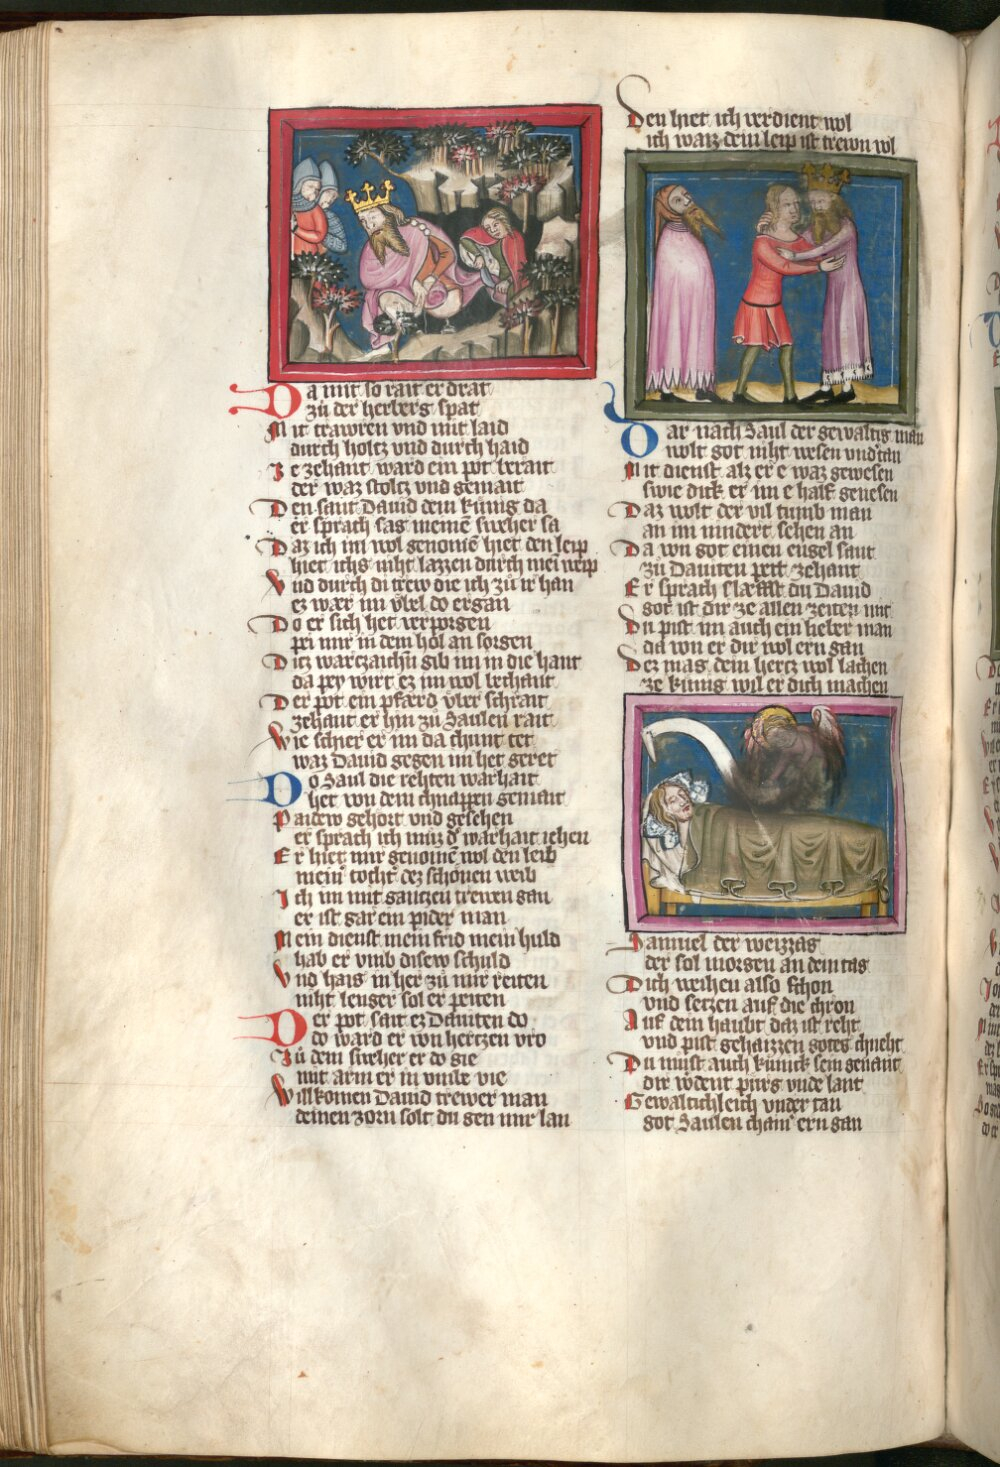 Da mit so rait er drat
zů der herberg spat
Mit trawren vnd mit laid
durch holtz vnd durch haid
Ze zehant ward ein pot berait
der waz stoltz vnd gemait
Den sant Dauid dem kůnig da
er sprach sag meinē sweher sa
Daz ich im wol genomē hiet den leip
hiet ichs niht lazzen durch mei weip
Vnd durch di trew die ich zů ir han
ez wær im v̈bel do ergan
Do er sich het verporgen
pei mir in dem hol an sorgen
Ditz warczaichn̄ gib im in die hant
da pey wirt ez im wol bechant
Der pot ein pfærd v̈ber schrait
zehant er hin zů Saulen rait
Wie schier er im da chunt tet
waz Dauid gegen im het geret
Do Saul die rehten warhait
het von dem chnappen gemait
Paidew gehort vnd gesehen
er sprach ich můz d̕ warhait iehen
Er hiet mir genomē wol den leib
mein tocht̕ dez schönen weib
Ich im mit gantzen trewen gan
er ist gar ein pider man
Mein dienst mein frid mein huld
hab er vmb disew schuld
Vnd hais in her zů mir reiten
niht lenger sol er peiten
Der pot sait ez Dauiten do
do ward er von hertzen vro
Zů dem sweher er do gie
mit arm er in vmbe vie
Willkomen Dauid trewer man
deinen zorn solt du gen mir lan
Den hiet ich verdient wol
ich waiz dein leip ist trewn vol
Dar nach Saul der gewaltig man
wolt got niht wesen vndtan
Mit dienst alz er e waz gewesen
swie dick er im e half genesen
Daz wolt der vil tumb man
an im nindert sehen an
Da von got einen engel sant
zů Dauiten pett zehant
Er sprach slæffst du Dauid
got ist dir ze allen zeiten mit
Du pist im auch ein lieber man
da von er dir wol ern gan
Dez mag dein hertz wol lachen
ze kůnig wil er dich machen
Samuel der weizzag
der sol morgen an dem tag
Dich weihen also schon
vnd setzen auf die chron
Auf dem haubt daz ist reht
vnd pist gehaizzen gotes chneht
Du můst auch kůnick sein genant
dir w̓dent pürg vnde lant
Gewaltichleich vnder tan
got Saulen cham̄ ern gan